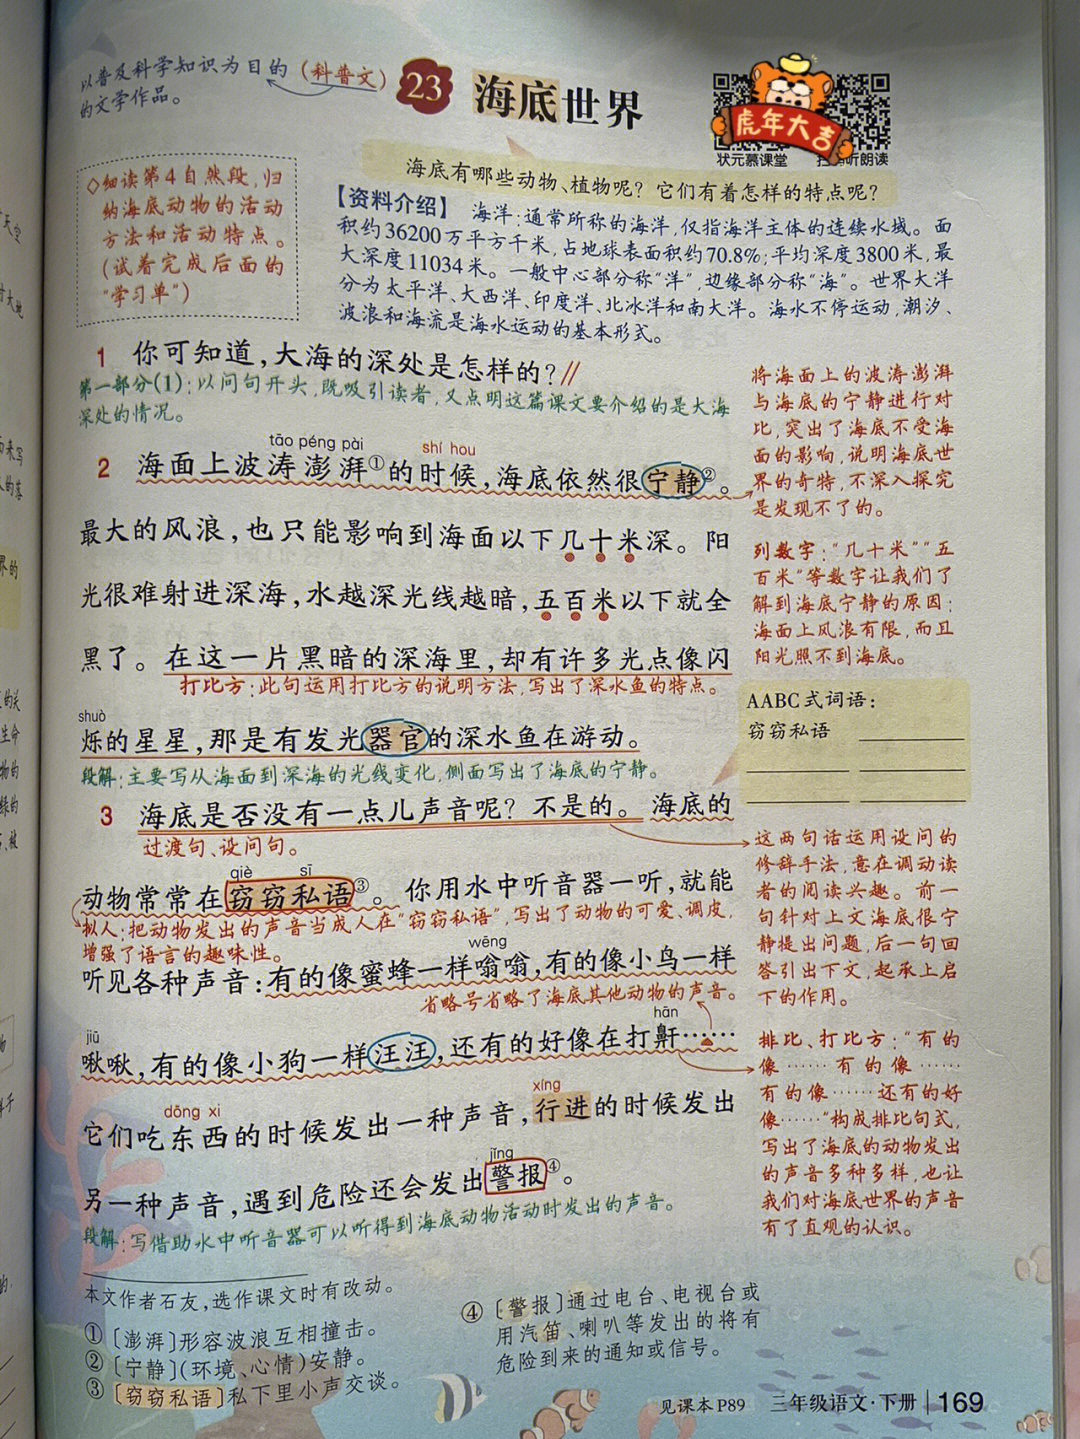 以普及科学知识为目的
的文学作品。
(科普文)
23 海底世界
虎年大吉
状元慕课堂
听朗读
海底有哪些动物、植物呢？它们有着怎样的特点呢？
◇细读第4自然段，归
纳海底动物的活动
方法和活动特点。
(试着完成后面的
“学习单”)
【资料介绍】 海洋：通常所称的海洋，仅指海洋主体的连续水域。面
积约36200万平方千米，占地球表面积约70.8%；平均深度3800米，最
大深度11034米。一般中心部分称“洋”，边缘部分称“海”。世界大洋
分为太平洋、大西洋、印度洋、北冰洋和南大洋。海水不停运动，潮汐、
波浪和海流是海水运动的基本形式。
1 你可知道，大海的深处是怎样的？//
第一部分(1)：以问句开头，既吸引读者，又点明这篇课文要介绍的是大海
深处的情况。
tāo péng pài
shí hou
2 海面上波涛澎湃①的时候，海底依然很宁静②。
最大的风浪，也只能影响到海面以下几十米深。阳
光很难射进深海，水越深光线越暗，五百米以下就全
黑了。在这一片黑暗的深海里，却有许多光点像闪
打比方：此句运用打比方的说明方法，写出了深水鱼的特点。
shuò
烁的星星，那是有发光器官的深水鱼在游动。
段解：主要写从海面到深海的光线变化，侧面写出了海底的宁静。
3 海底是否没有一点儿声音呢？不是的。海底的
过渡句、设问句。
qiè sī
动物常常在窃窃私语③。你用水中听音器一听，就能
拟人：把动物发出的声音当成人在“窃窃私语”，写出了动物的可爱、调皮，
增强了语言的趣味性。
wēng
听见各种声音：有的像蜜蜂一样嗡嗡，有的像小鸟一样
省略号省略了海底其他动物的声音。
jiū
hān
啾啾，有的像小狗一样汪汪，还有的好像在打鼾……
dōng xi
xíng
它们吃东西的时候发出一种声音，行进的时候发出
jǐng
另一种声音，遇到危险还会发出警报④。
段解：写借助水中听音器可以听得到海底动物活动时发出的声音。
将海面上的波涛澎湃
与海底的宁静进行对
比，突出了海底不受海
面的影响，说明海底世
界的奇特，不深入探究
是发现不了的。
列数字：“几十米”“五
百米”等数字让我们了
解到海底宁静的原因：
海面上风浪有限，而且
阳光照不到海底。
AABC式词语：
窃窃私语
这两句话运用设问的
修辞手法，意在调动读
者的阅读兴趣。前一
句针对上文海底很宁
静提出问题，后一句回
答引出下文，起承上启
下的作用。
排比、打比方：“有的
像……有的像……
有的像……还有的好
像……”构成排比句式，
写出了海底的动物发出
的声音多种多样，也让
我们对海底世界的声音
有了直观的认识。
本文作者石友，选作课文时有改动。
①〔澎湃〕形容波浪互相撞击。
②〔宁静〕(环境、心情)安静。
③〔窃窃私语〕私下里小声交谈。
④〔警报〕通过电台、电视台或
用汽笛、喇叭等发出的将有
危险到来的通知或信号。
见课本P89 三年级语文·下册 169